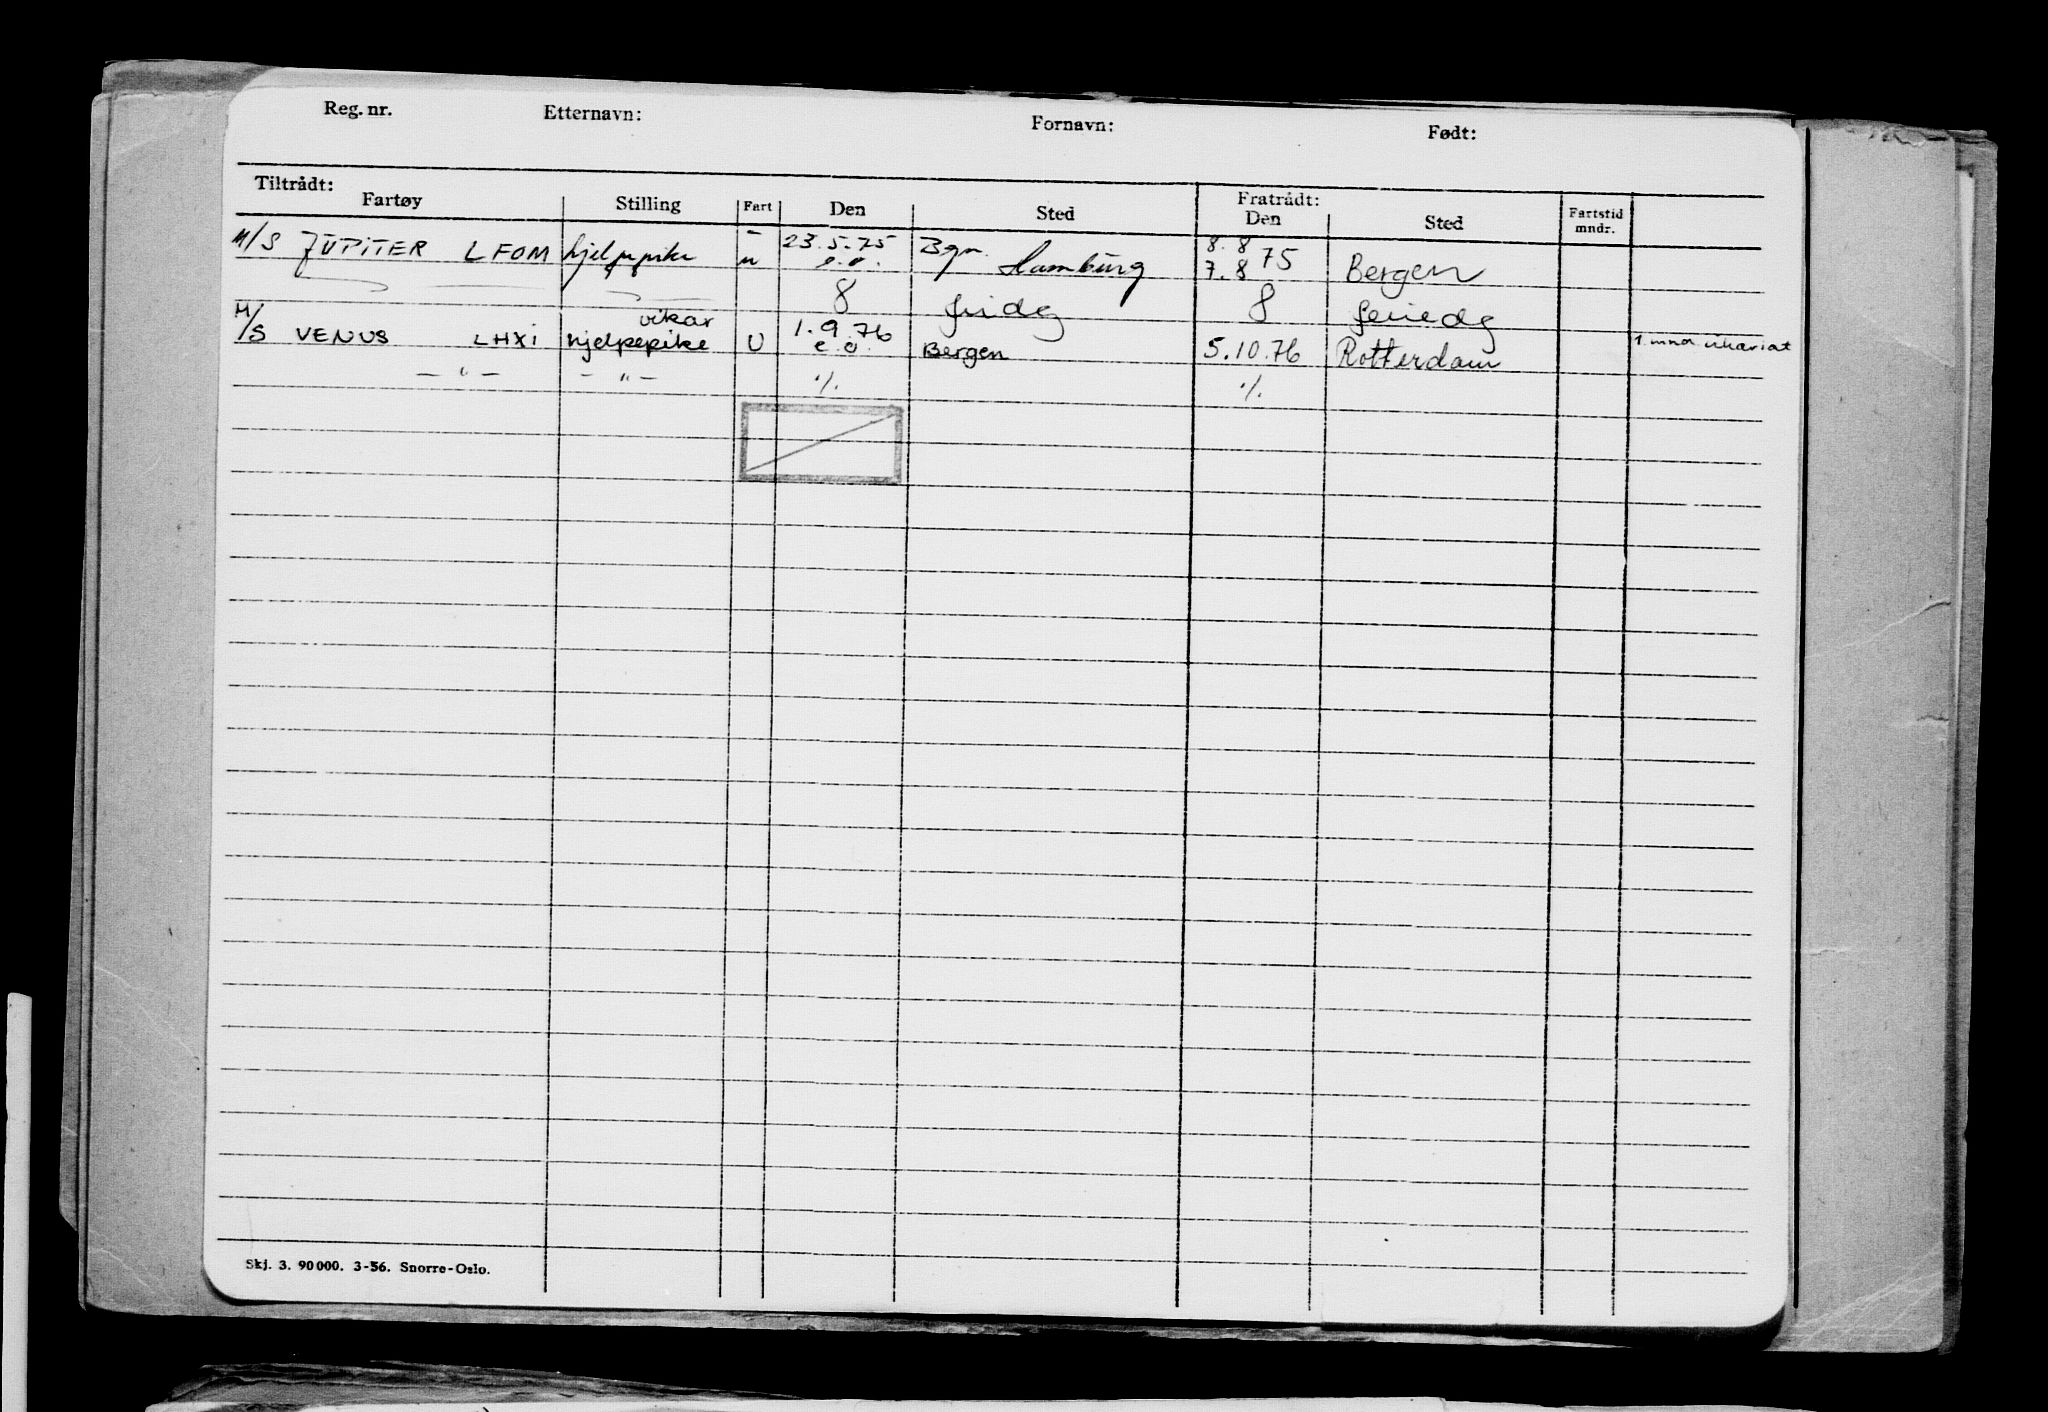 Reg. nr. Etternavn: Fornavn: Født:
Tiltrådt: Fratrådt:
Fartøy Stilling Fart Den Sted Den Sted Fartstid mndr.
M/S JUPITER LFOM hjelpepike - 23.5.75 Bgn. 8.8
u e.o. Hamburg 7.8 75 Bergen
8 fridg 8 feriedg
vikar
M/S VENUS LHXI hjelpepike U 1.9.76 Bergen 5.10.76 Rotterdam 1. mnd. vikariat
e.o.
— " — — " — ./. ./.
Skj. 3. 90000. 3-56. Snorre-Oslo.